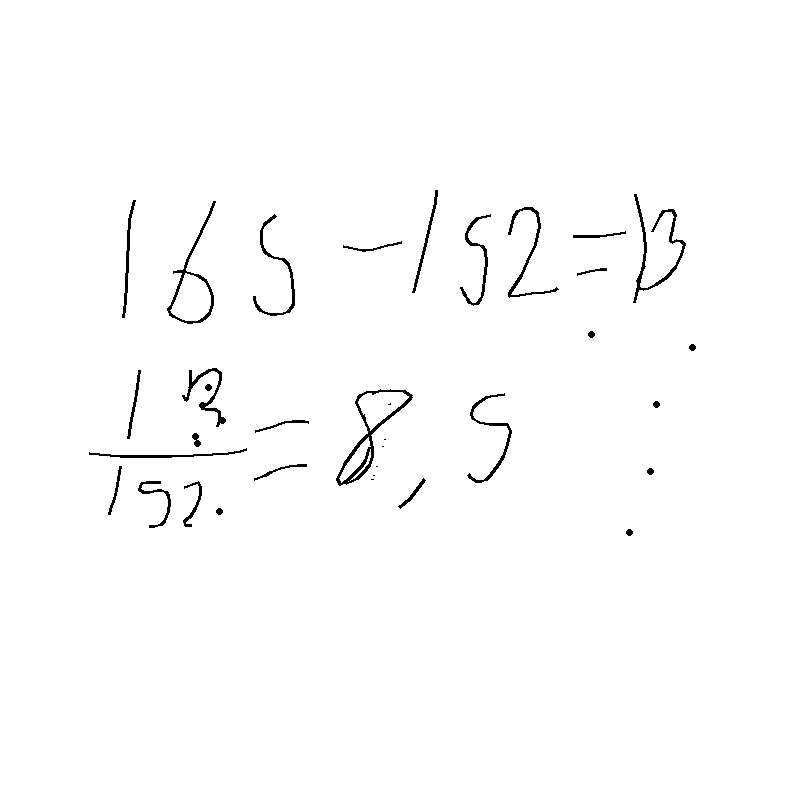 165-152=13
13/152=8,5